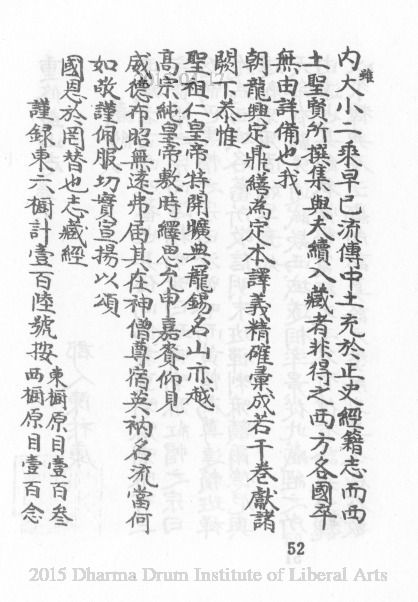 雖
內大小二乘早已流傳中土充於正史經籍志而西
土聖賢所撰集與夫續入藏者非得之西方各國卒
無由詳備也我
朝龍興定鼎繕為定本譯義精確彙成若干卷獻諸
闕下恭惟
聖祖仁皇帝特開曠典寵錫名山亦越
高宗純皇帝敷時繹思允申嘉賚仰見
威德布昭無遠弗届其在神僧尊宿英衲名流當何
如敬謹佩服切實宣揚以頌
國恩於罔替也志藏經
謹録東六櫥計壹百陸號按
東櫥原目壹百叁
西櫥原目壹百念
52
2015 Dharma Drum Institute of Liberal Arts